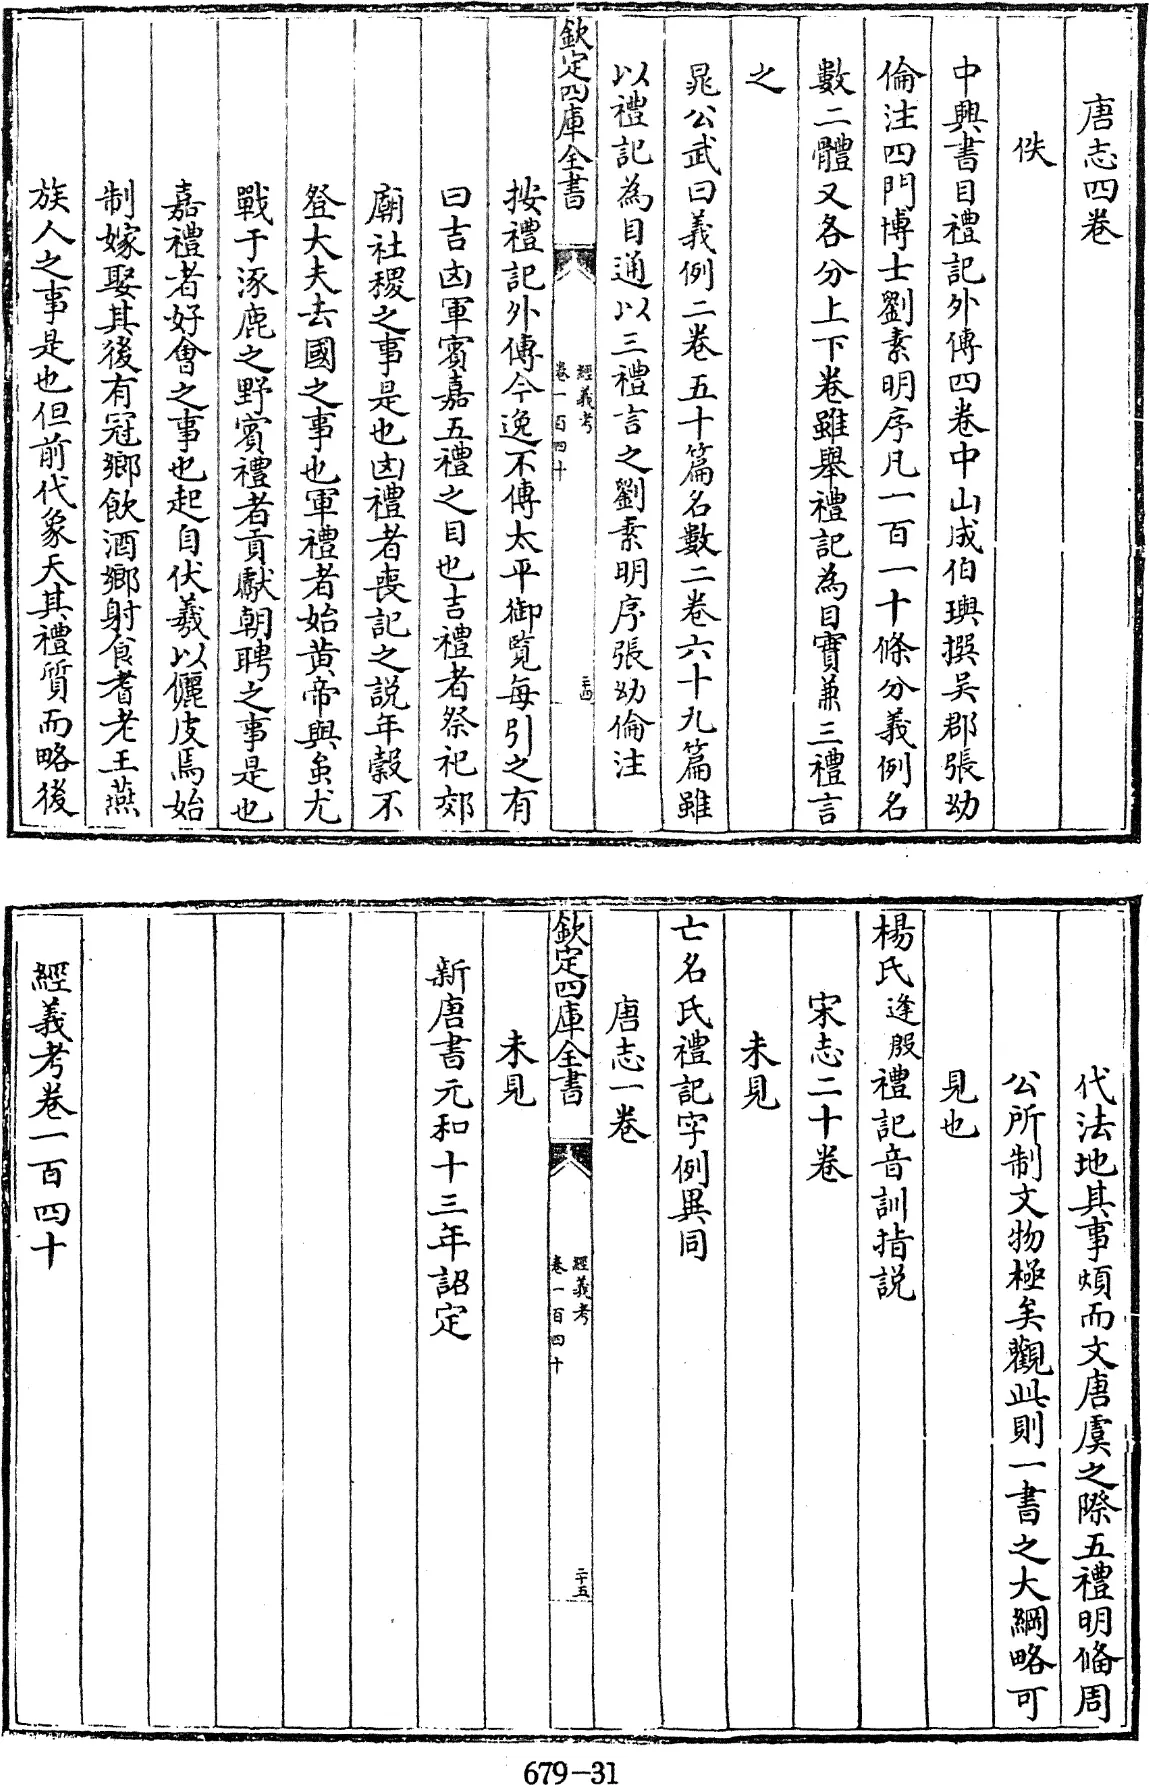 唐志四卷
佚
中興書目禮記外傳四卷中山成伯璵撰吳郡張幼
倫注四門博士劉素明序凡一百一十條分義例名
數二體又各分上下卷雖舉禮記為目實兼三禮言
之
晁公武曰義例二卷五十篇名數二卷六十九篇雖
以禮記為目通以三禮言之劉素明序張幼倫注
欽定四庫全書
經義考
卷一百四十
二十四
按禮記外傳今逸不傳太平御覽每引之有
曰吉凶軍賓嘉五禮之目也吉禮者祭祀郊
廟社稷之事是也凶禮者喪記之説年穀不
登大夫去國之事也軍禮者始黄帝與蚩尤
戰于涿鹿之野賓禮者貢獻朝聘之事是也
嘉禮者好會之事也起自伏羲以儷皮焉始
制嫁娶其後有冠鄉飲酒鄉射食耆老王燕
族人之事是也但前代象天其禮質而略後
代法地其事煩而文唐虞之際五禮明備周
公所制文物極矣觀此則一書之大綱略可
見也
楊氏逢殷禮記音訓指説
宋志二十卷
未見
亡名氏禮記字例異同
唐志一卷
欽定四庫全書
經義考
卷一百四十
二十五
未見
新唐書元和十三年詔定
經義考卷一百四十
679-31